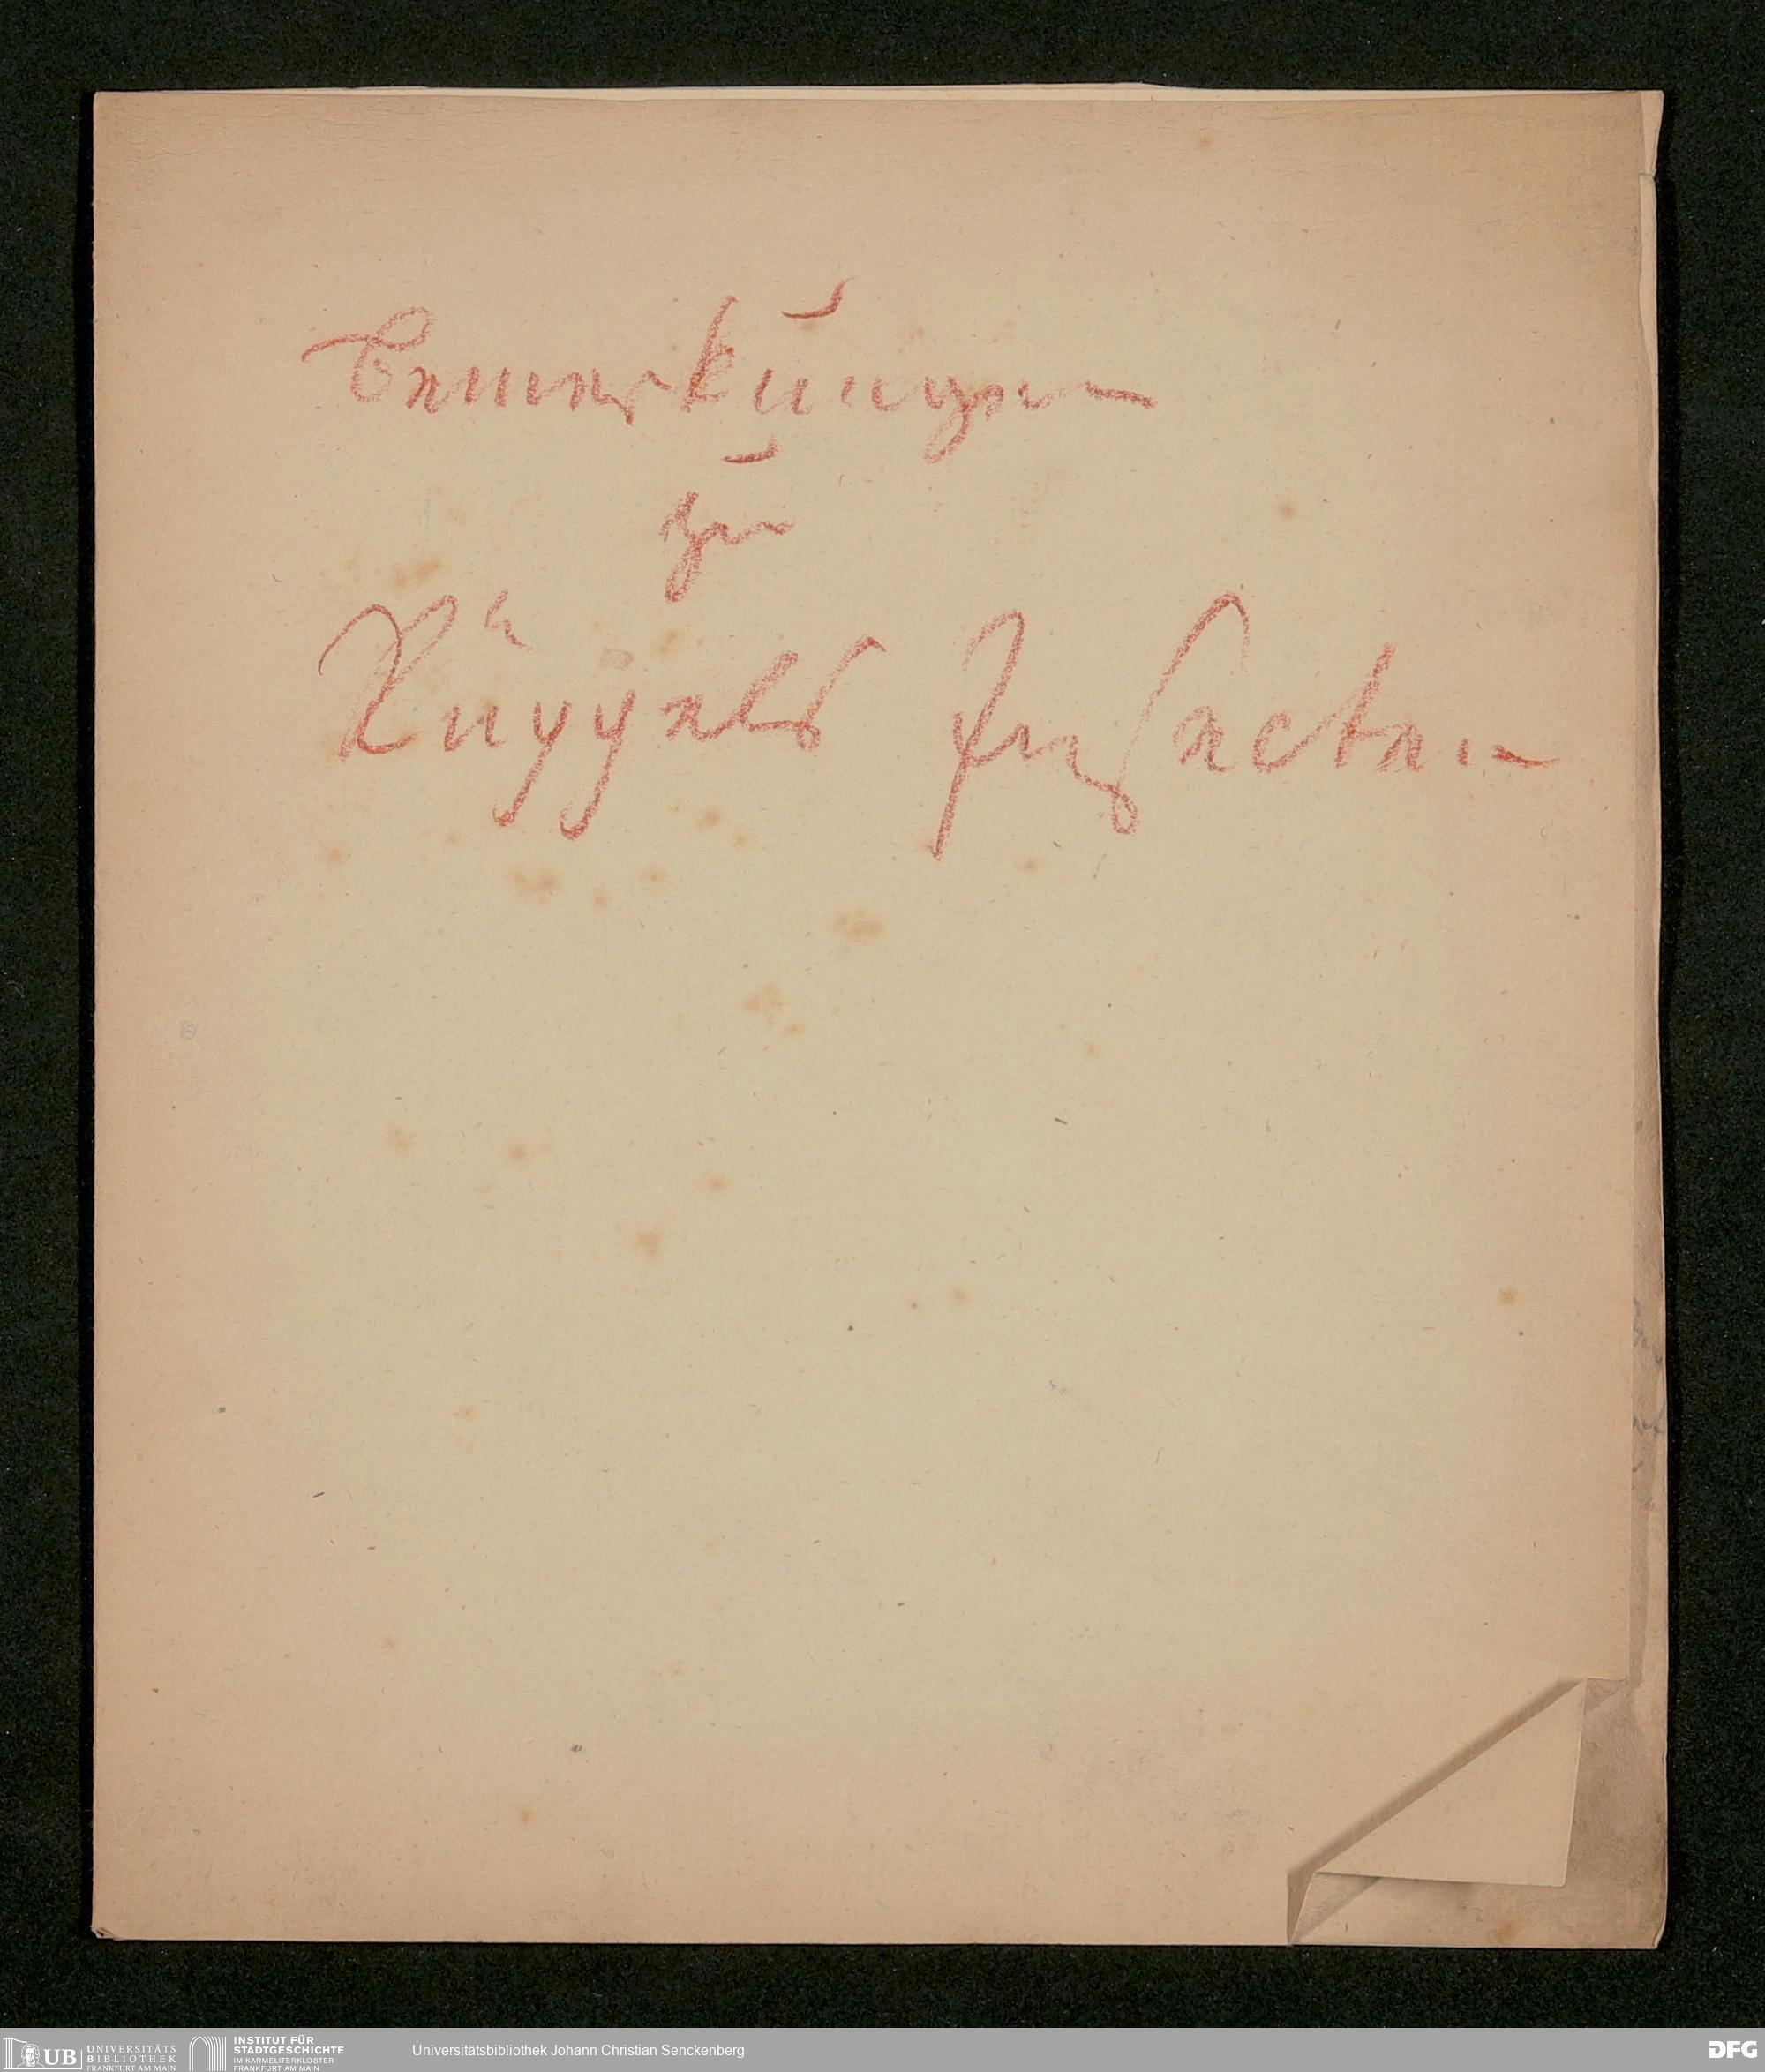 Bemerkungen
zu
Rüppels Insecten
UB UNIVERSITÄTS
BIBLIOTHEK
FRANKFURT AM MAIN
INSTITUT FÜR
STADTGESCHICHTE
IM KARMELITERKLOSTER
FRANKFURT AM MAIN
Universitätsbibliothek Johann Christian Senckenberg
DFG